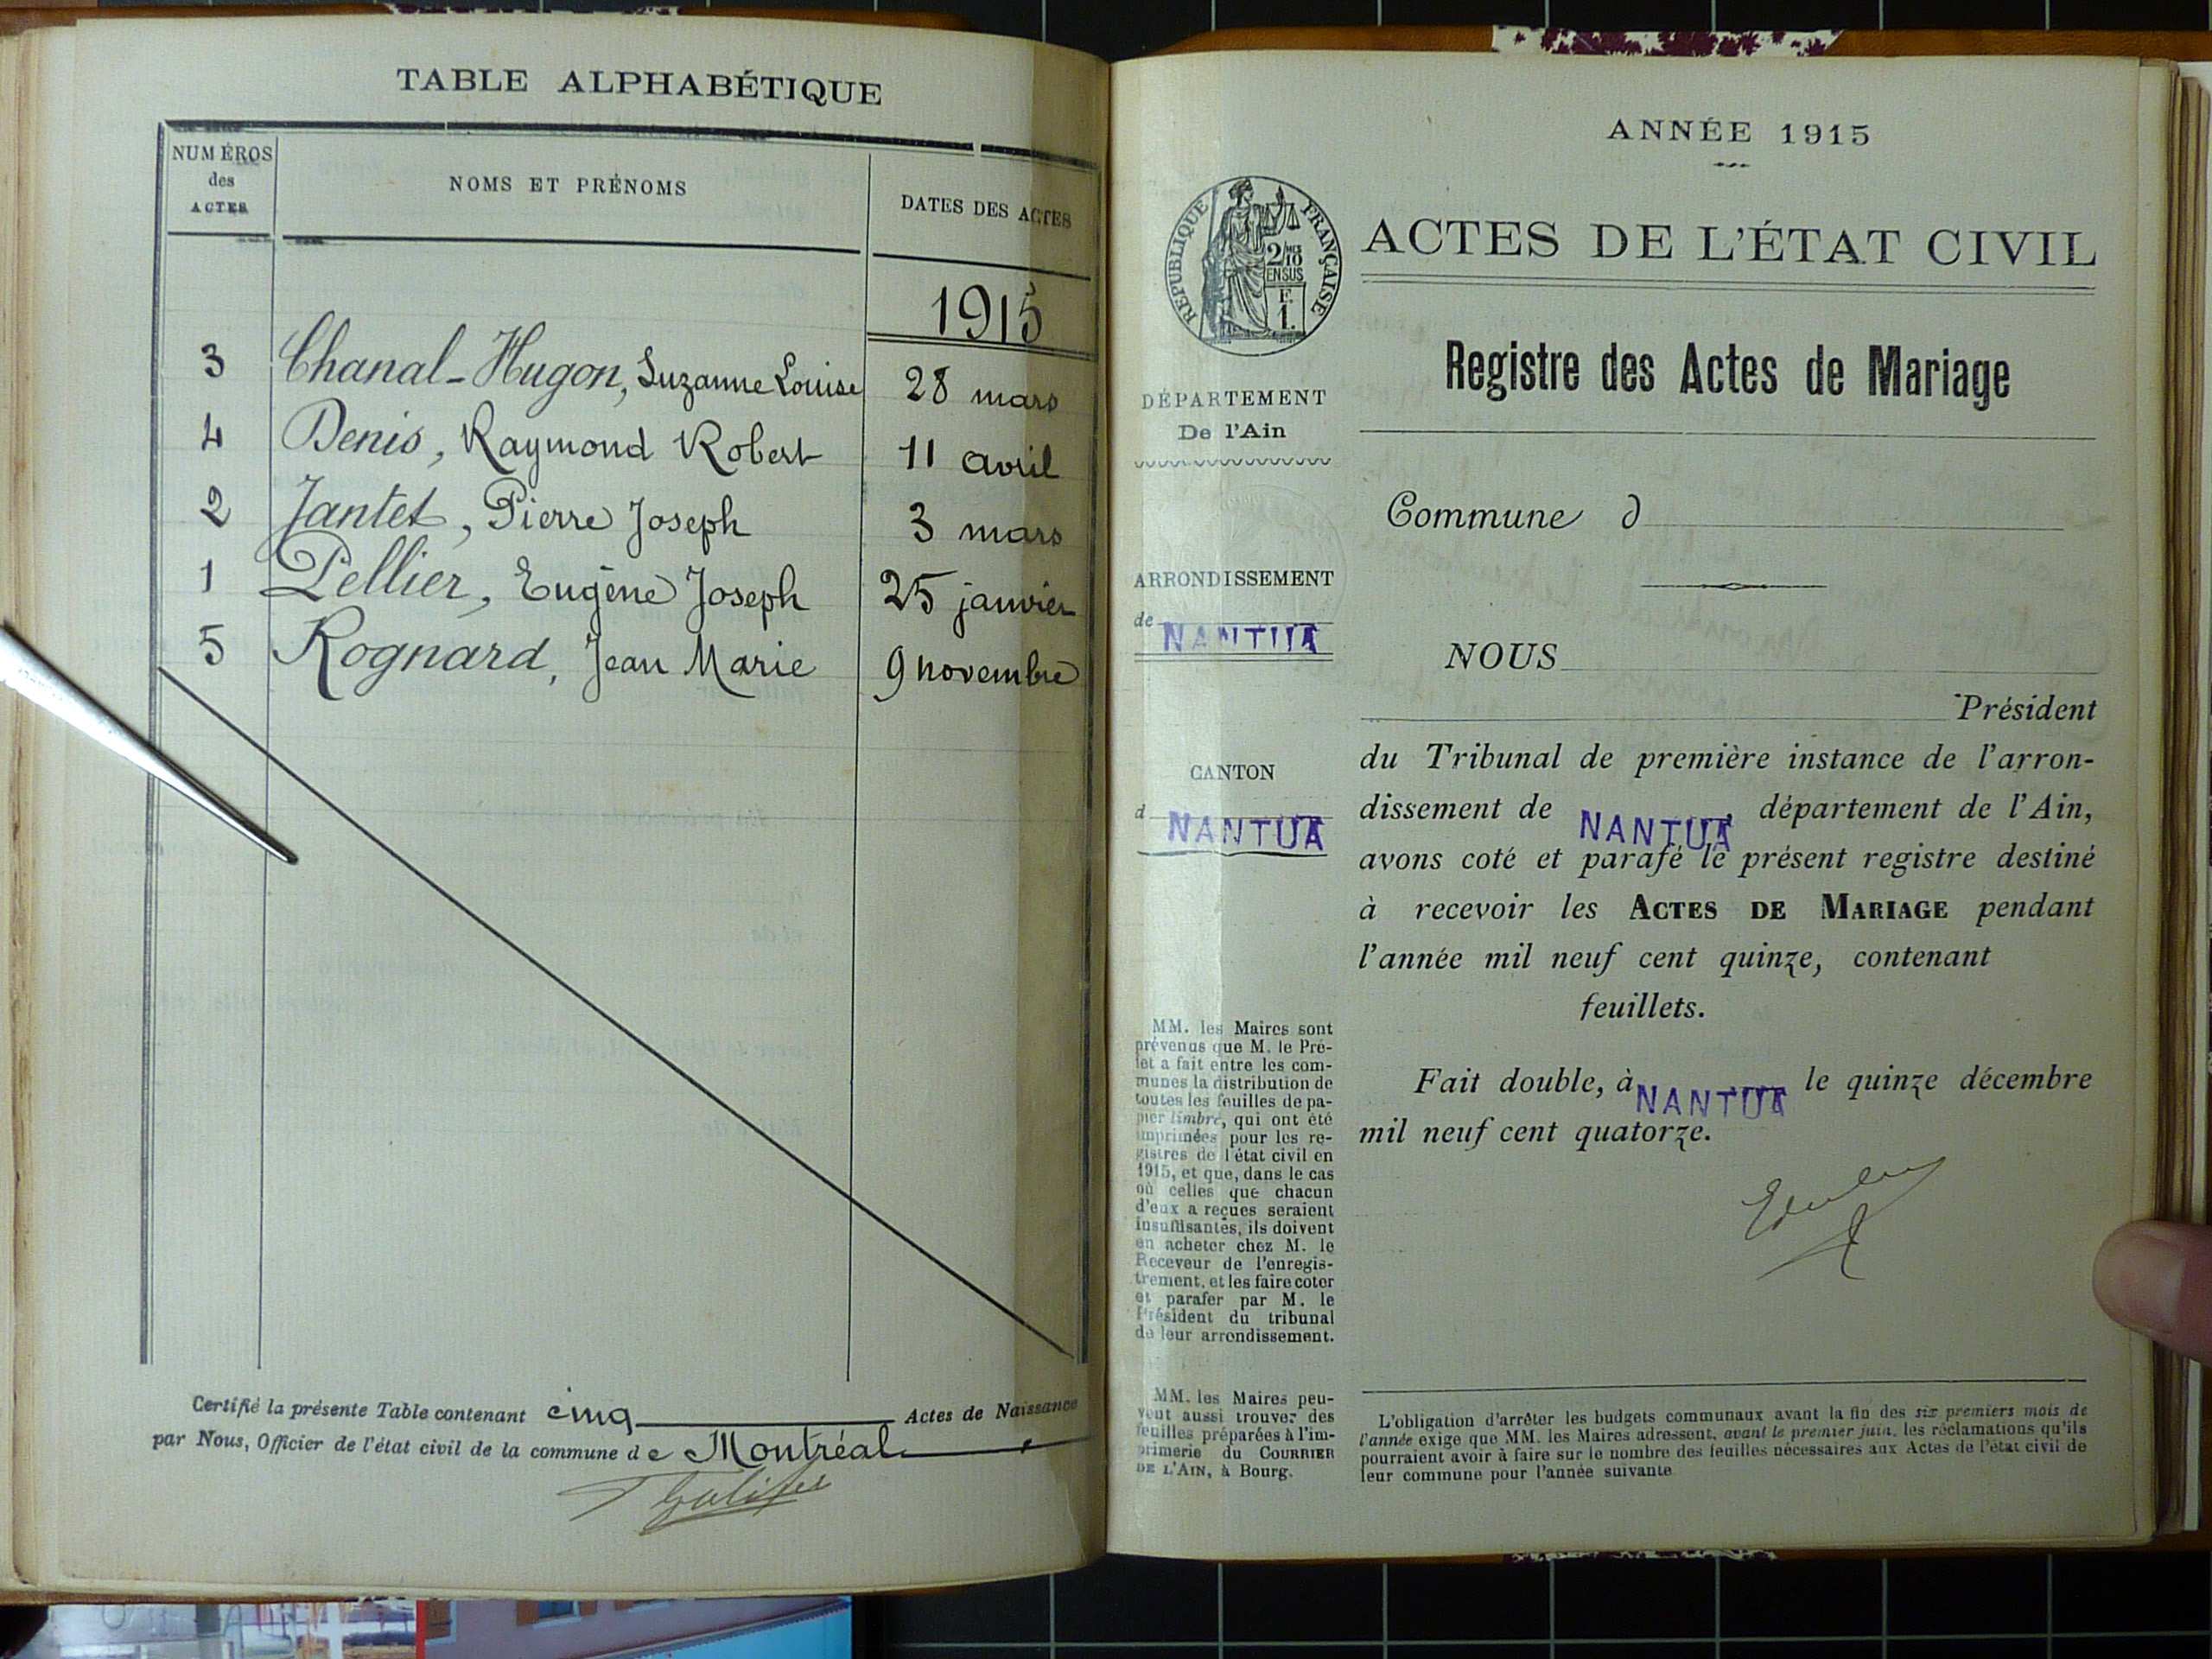 TABLE ALPHABÉTIQUE
NUMÉROS
des
ACTES
NOMS ET PRÉNOMS
DATES DES ACTES
1915
3 Chanal-Hugon, Suzanne Louise 28 mars
4 Denis, Raymond Robert 11 avril
2 Jantet, Pierre Joseph 3 mars
1 Pellier, Eugène Joseph 25 janvier
5 Rognard, Jean Marie 9 novembre
Certifié la présente Table contenant cinq Actes de Naissance
par Nous, Officier de l'état civil de la commune de Montréal
ANNÉE 1915
RÉPUBLIQUE FRANÇAISE
2/10
EN SUS
F.
1.
DÉPARTEMENT
De l'Ain
ARRONDISSEMENT
de
NANTUA
CANTON
d
NANTUA
MM. les Maires sont
prévenus que M. le Pré-
fet a fait entre les com-
munes la distribution de
toutes les feuilles de pa-
pier timbré, qui ont été
imprimées pour les re-
gistres de l'état civil en
1915, et que, dans le cas
où celles que chacun
d'eux a reçues seraient
insuffisantes, ils doivent
en acheter chez M. le
Receveur de l'enregis-
trement, et les faire coter
et parafer par M. le
Président du tribunal
de leur arrondissement.
MM. les Maires peu-
vent aussi trouver des
feuilles préparées à l'im-
primerie du COURRIER
DE L'AIN, à Bourg.
ACTES DE L'ÉTAT CIVIL
Registre des Actes de Mariage
Commune d
NOUS
Président
du Tribunal de première instance de l'arron-
dissement de NANTUA, département de l'Ain,
avons coté et parafé le présent registre destiné
à recevoir les ACTES DE MARIAGE pendant
l'année mil neuf cent quinze, contenant
feuillets.
Fait double, à NANTUA le quinze décembre
mil neuf cent quatorze.
L'obligation d'arrêter les budgets communaux avant la fin des six premiers mois de
l'année exige que MM. les Maires adressent, avant le premier juin, les réclamations qu'ils
pourraient avoir à faire sur le nombre des feuilles nécessaires aux Actes de l'état civil de
leur commune pour l'année suivante